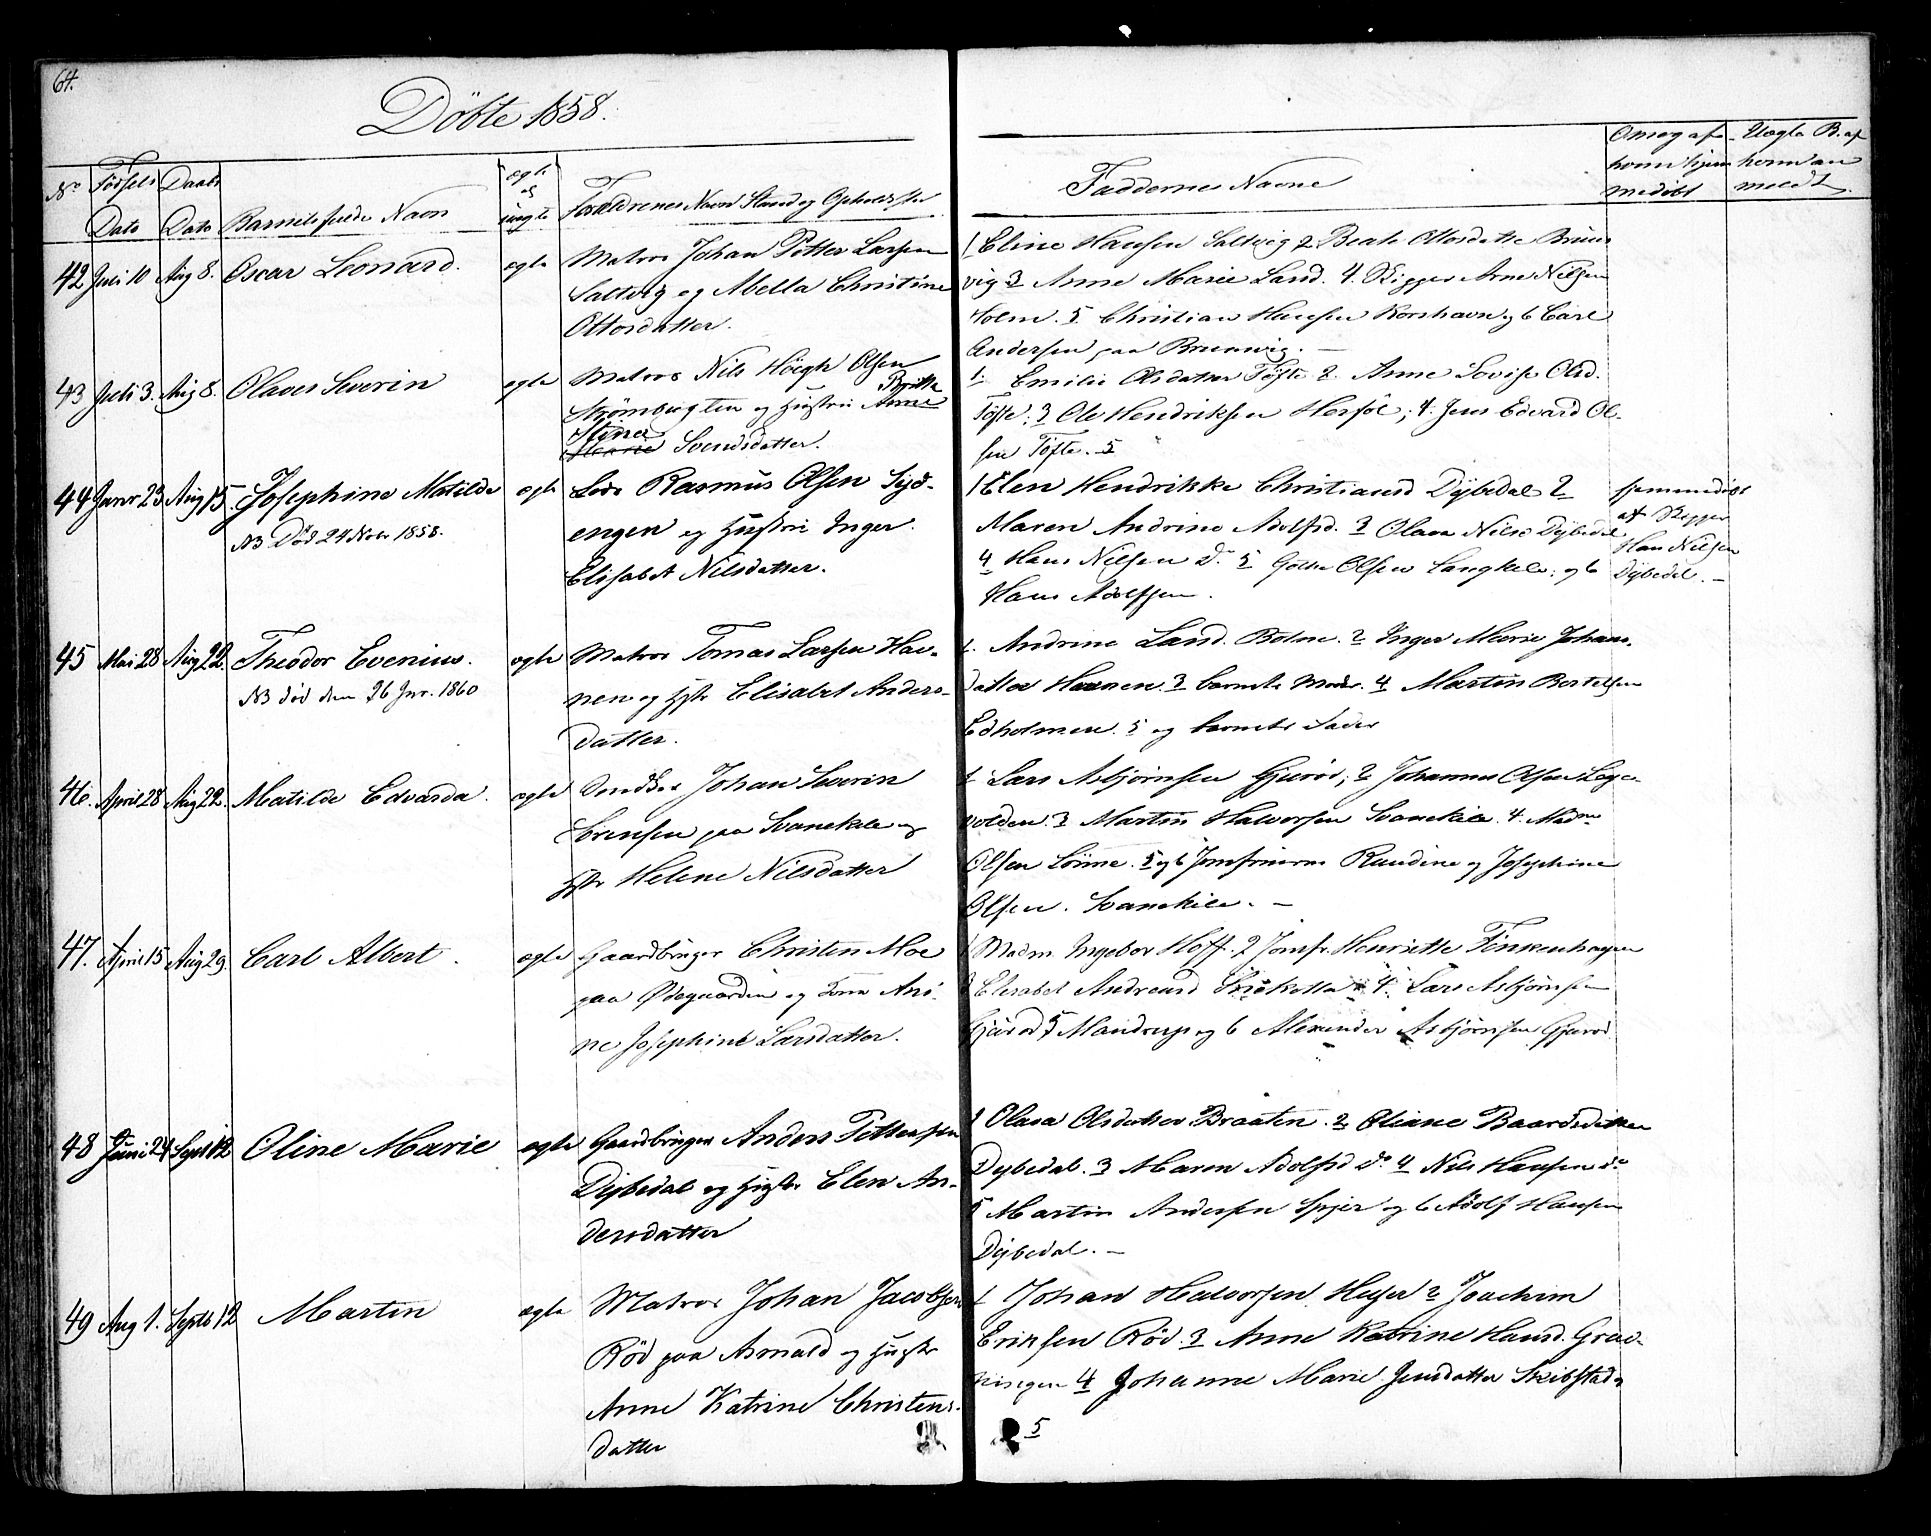 64.
Döbte 1858.
No
Fødsels Dato
Daabs Dato
Barnets fulde Navn
ægte og uægte
Forældrenes Navn Stand og Opholdsste
Faddernes Navne
Om og af hvem hjemmedöbt
Uægte B. af hvem anmeldt
42 Juli 10 Aug 8. Oscar Leonard. ægte
Matros Johan Petter Larsen
Saltvig og Mella Christine
Ottosdatter.
1 Eline Hansen Saltvig 2 Beate Ottosdatte Brunsvig
3 Anne Marie Lars d. 4. Skipper Arne Nilsen
Holm. 5 Christian Hansen Korshavn og 6 Carl
Andersen paa Brunsvig. –
43 Juli 3. Aug 8. Olaves Severin ægte
Matros Nils Höegh Olsen
Strömbugten og Hustru Anne Britte
Stina Marie Svendsdatter.
1. Emilie Olsdatter Töfte 2. Anne Lovise Olsd.
Töfte; 3 Ole Hendriksen Herföl; 4. Jens Edvard Ol-
sen Töfte. 5
44 Janr 23 Aug 15. Josephine Matilde ægte
NB Död 24 Novr 1858.
Lods Rasmus Olsen Syd-
engen og Hustru Inger
Elisabet Nilsdatter.
1 Elen Hendrikke Christiansd Dybedal 2
Maren Andrine Adolfsd. 3 Olava Nilsd Dybedal
4 Hans Nilsen Do 5 Golte Olsen Langkile; og 6
Hans Adolfsen.
hjemmedöbt
af Skipper
Hans Nilsen
Dybedal. –
45 Mai 28 Aug 22. Theodor Evenius. ægte
NB död den 26 Jnr. 1860
Matros Tomas Larsen Hav-
nen og Hstr Elisabet Anders-
datter.
1. Andrine Larsd. Botne. 2 Inger Marie Johans-
datter Havnen. 3 barnets Moder. 4 Martin Bertelsen
Edholmen. 5 og barnets Fader
46. April 28 Aug 22. Matilde Edvarda. ægte
Snedker Johan Severin
Sörensen paa Svanekile og
Hstr Helene Nilsdatter
1 Lars Asbjörnsen Gjuröd; 2 Johannes Olsen Löge
volden. 3 Martin Halvorsen Svanekile. 4. Madme
Olsen Lönne. 5 og 6 Jomfruerne Randine og Josephine
Olsen. Svanekile. –
47. April 15 Aug 29. Carl Albert. ægte
Gaardbruger Christen Moe
paa Ödegaarden og Kone Ani-
ne Josephine Larsdatter.
1 Madm Ingebor Hoff. 2 Jomfr. Henriette Finkenhagen
3 Elisabet Andreasd 4. Lars Asbjörnsen
Gjuröd 5 Mandrup og 6 Alexander Asbjörnsen Gjuröd
48 Juni 24 Sept 12 Oline Marie ægte
Gaardbruger Anders Pettersen
Dybedal og Hustr Elen An-
dersdatter
1 Olava Olsdatter Braaten. 2 Oliane Baardsdatter
Dybedal. 3 Maren Adolfsd Do 4 Nils Hansen do
5 Martin Andersen Spjær og 6 Adolf Hansen
Dybedal. –
49 Aug 1. Septb 12 Martin ægte
Matros Johan Jacobsen
Röd paa Asmald og Hustr
Anne Katrine Christens-
datter
1 Johan Halvorsen Huser 2 Joachim
Eriksen Röd. 3 Anne Katrine Hansd. Græ-
ningen 4 Johanne Marie Jensdatter Skibstad
5